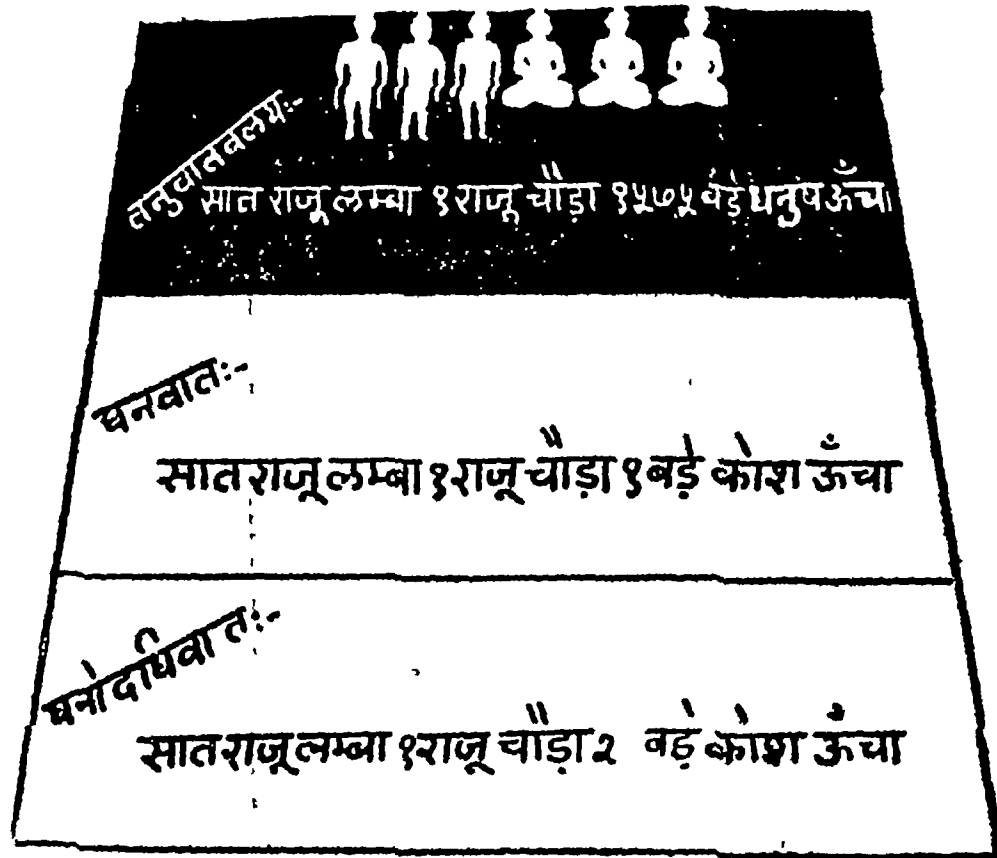 तनुवातवलयः-
सात राजू लम्बा १ राजू चौड़ा १५७५ बड़े धनुष ऊँचा
घनवातः-
सात राजू लम्बा १ राजू चौड़ा १ बड़े कोश ऊँचा
घनोदधिवातः-
सात राजू लम्बा १ राजू चौड़ा २ बड़े कोश ऊँचा